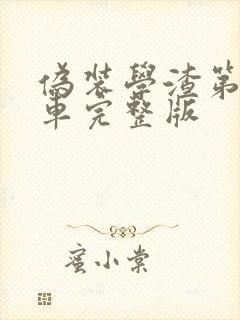 偽装學渣第
車完整版
蜜小棠